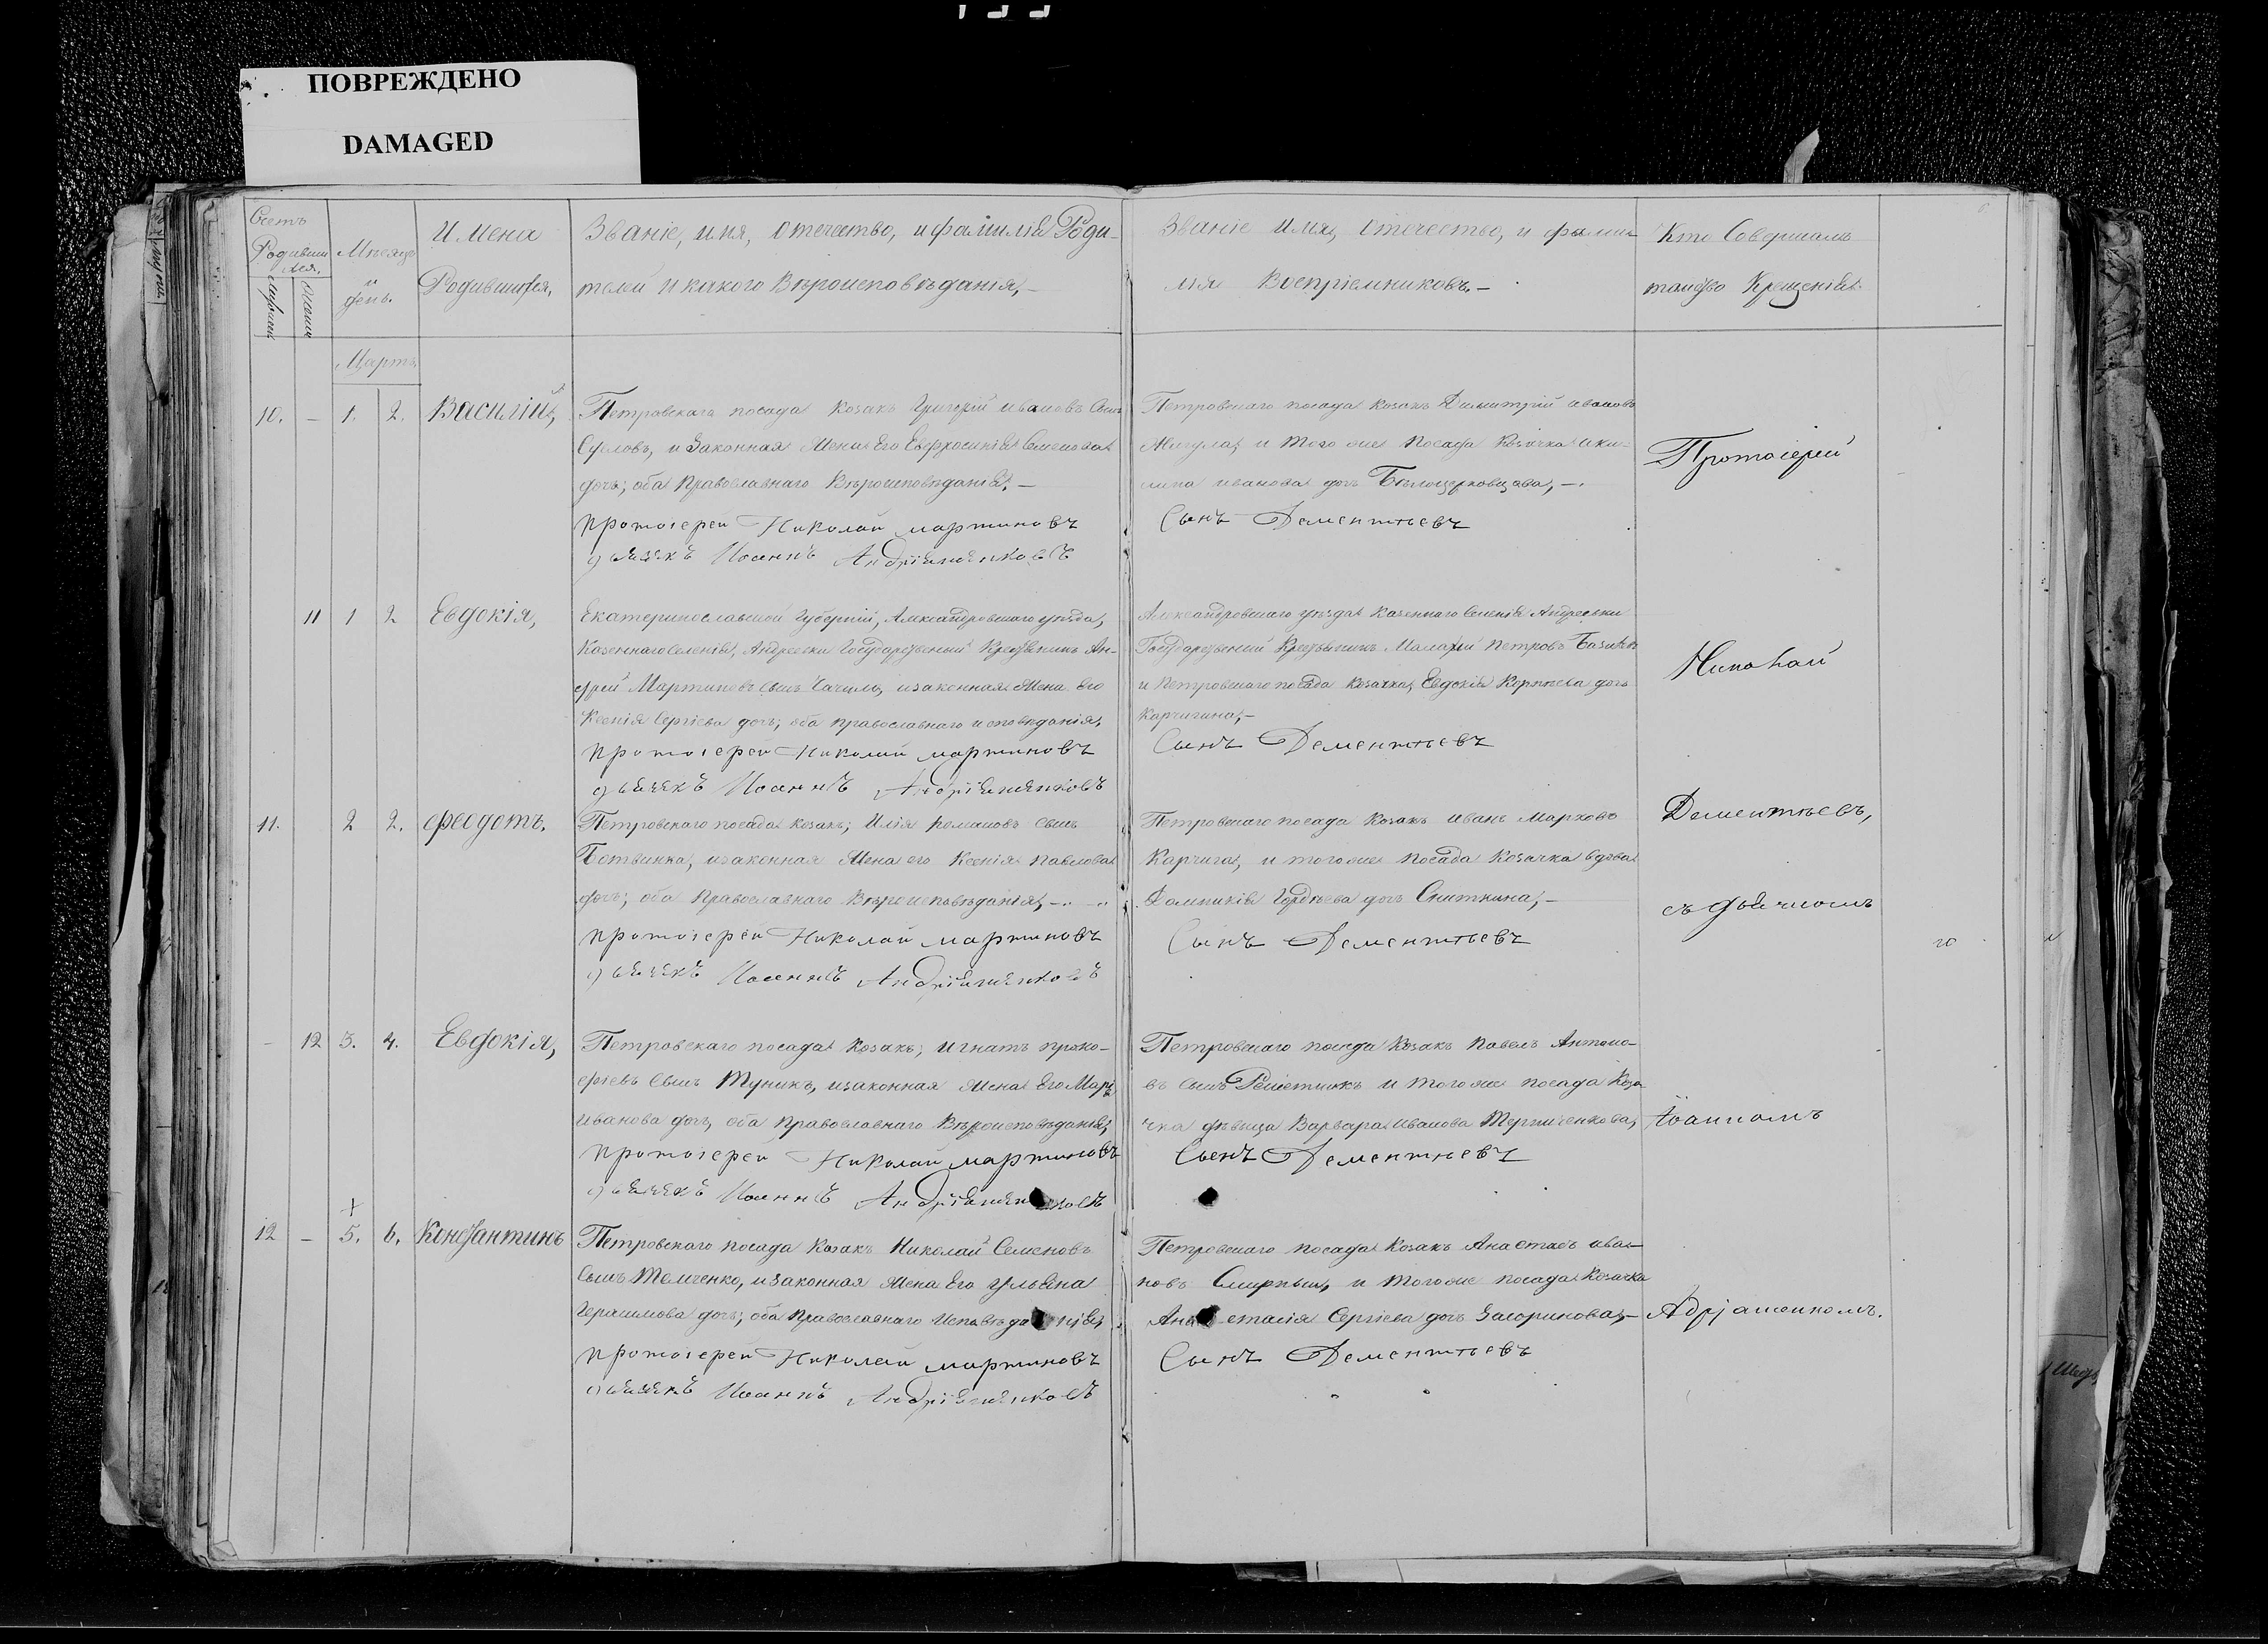 ПОВРЕЖДЕНО
DAMAGED
Счетъ
Родивших
ся.
Мѣсяцъ
и
день.
Имена
Родившихся,
Званіе, имя, отечество, и фамилія Роди-
телей и какого Вѣроисповѣданія,-
Званіе имя, отечество, и фами-
лія Воспріемниковъ.-
Кто Совершалъ
таинство Крещенія.
Мартъ.
10. - 1. 2. Василій,
Петровскаго посада козакъ Григорій Ивановъ Сынъ
и законная Жена Его Евфросинія Семенова
дочь; оба Православнаго Вѣроисповѣданія,-
Протоіерей Николай Мартиновъ
дьячекъ Иоаннъ Андріяшенковъ
Петровскаго посада козакъ Димитрій Ивановъ
Мигула, и того же Посада козачка Аки-
лина Иванова дочь Бѣлоцерковцева,-.
Сынъ Дементьевъ
Протоіерей
11 1 2 Евдокія,
Екатеринославской Губерніи, Александровскаго уѣзда,
Казеннаго Селенія, Андреевки Государственный Крестьянинъ Ан-
дрей Мартиновъ Сынъ и законная Жена Его
Ксенія Сергіева дочь; оба православнаго исповѣданія,
Протоіерей Николай Мартиновъ
дьячекъ Иоаннъ Андріяшенковъ
Александровскаго уѣзда Казеннаго Селенія Андреевки
Государственный Крестьянинъ Малахій Петровъ
и Петровскаго посада козачка, Евдокія Корнѣева дочь
Карчигина,-
Сынъ Дементьевъ
Николай
11. 2 2. Феодотъ.
Петровскаго посада козакъ; Илія Романовъ Сынъ
Ботвинка, и законная Жена его Ксенія Павлова
дочь; оба Православнаго Вѣроисповѣданія,-
Протоіерей Николай Мартиновъ
дьячекъ Иоаннъ Андріяшенковъ
Петровскаго посада козакъ Иванъ Марковъ
Карчига, и того же Посада Козачка вдова
Домникія Гордѣева дочь Сниткина,-
Сынъ Дементьевъ
Дементьевъ,
съ дьячкомъ
- 12 3. 4. Евдокія,
Петровскаго посада козакъ; Игнатъ Проко-
фіевъ Сынъ Тупикъ, и законная Жена Его Марія
Иванова дочь, оба Православнаго Вѣроисповѣданія,
Протоіерей Николай Мартиновъ
дьячекъ Иоаннъ Андріяшенковъ
Петровскаго посада козакъ Павелъ Антоно-
въ Сынъ Решетникъ и того же посада Коза-
чка дѣвица Варвара Иванова
Сынъ Дементьевъ
Іоанномъ
12 - 5. 6. Константинъ
Петровскаго посада Козакъ Николай Семеновъ
Сынъ Темченко, и законная Жена Его Ульяна
Герасимова дочь; оба Православнаго Исповѣданія,
Протоіерей Николай Мартиновъ
дьячекъ Иоаннъ Андріяшенковъ
Петровскаго посада Козакъ Анастасъ Ива-
новъ и того же посада Козачка
Анастасія Сергіева дочь
Сынъ Дементьевъ
Адріашенкомъ.